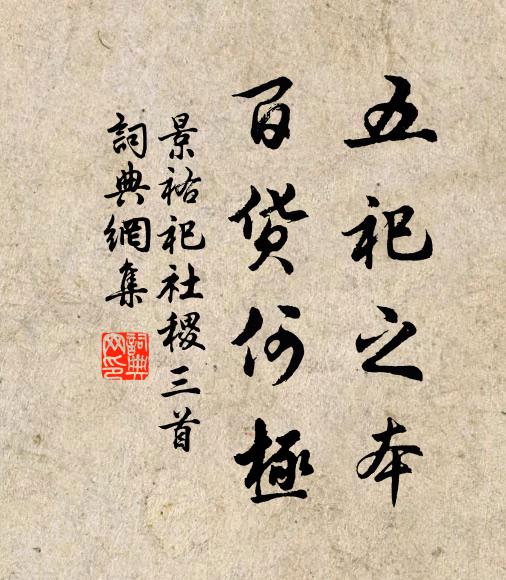 五祀之本
百貨何極
景祐祀社稷三首
詞典網集
詞典
网印